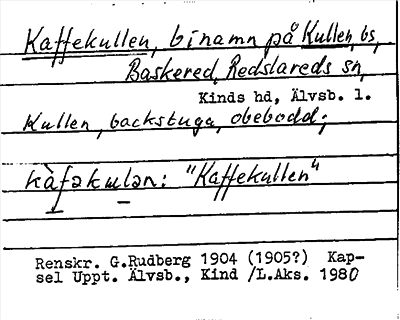 Kaffekullen, binamn på Kullen, bs,
Baskered, Redslareds sn,
Kinds hd, Älvsb. l.
Kullen, backstuga, obebodd;
kàfəkulən: "Kaffekullen"
Renskr. G.Rudberg 1904 (1905?) Kap-
sel Uppt. Älvsb., Kind /L.Aks. 1980